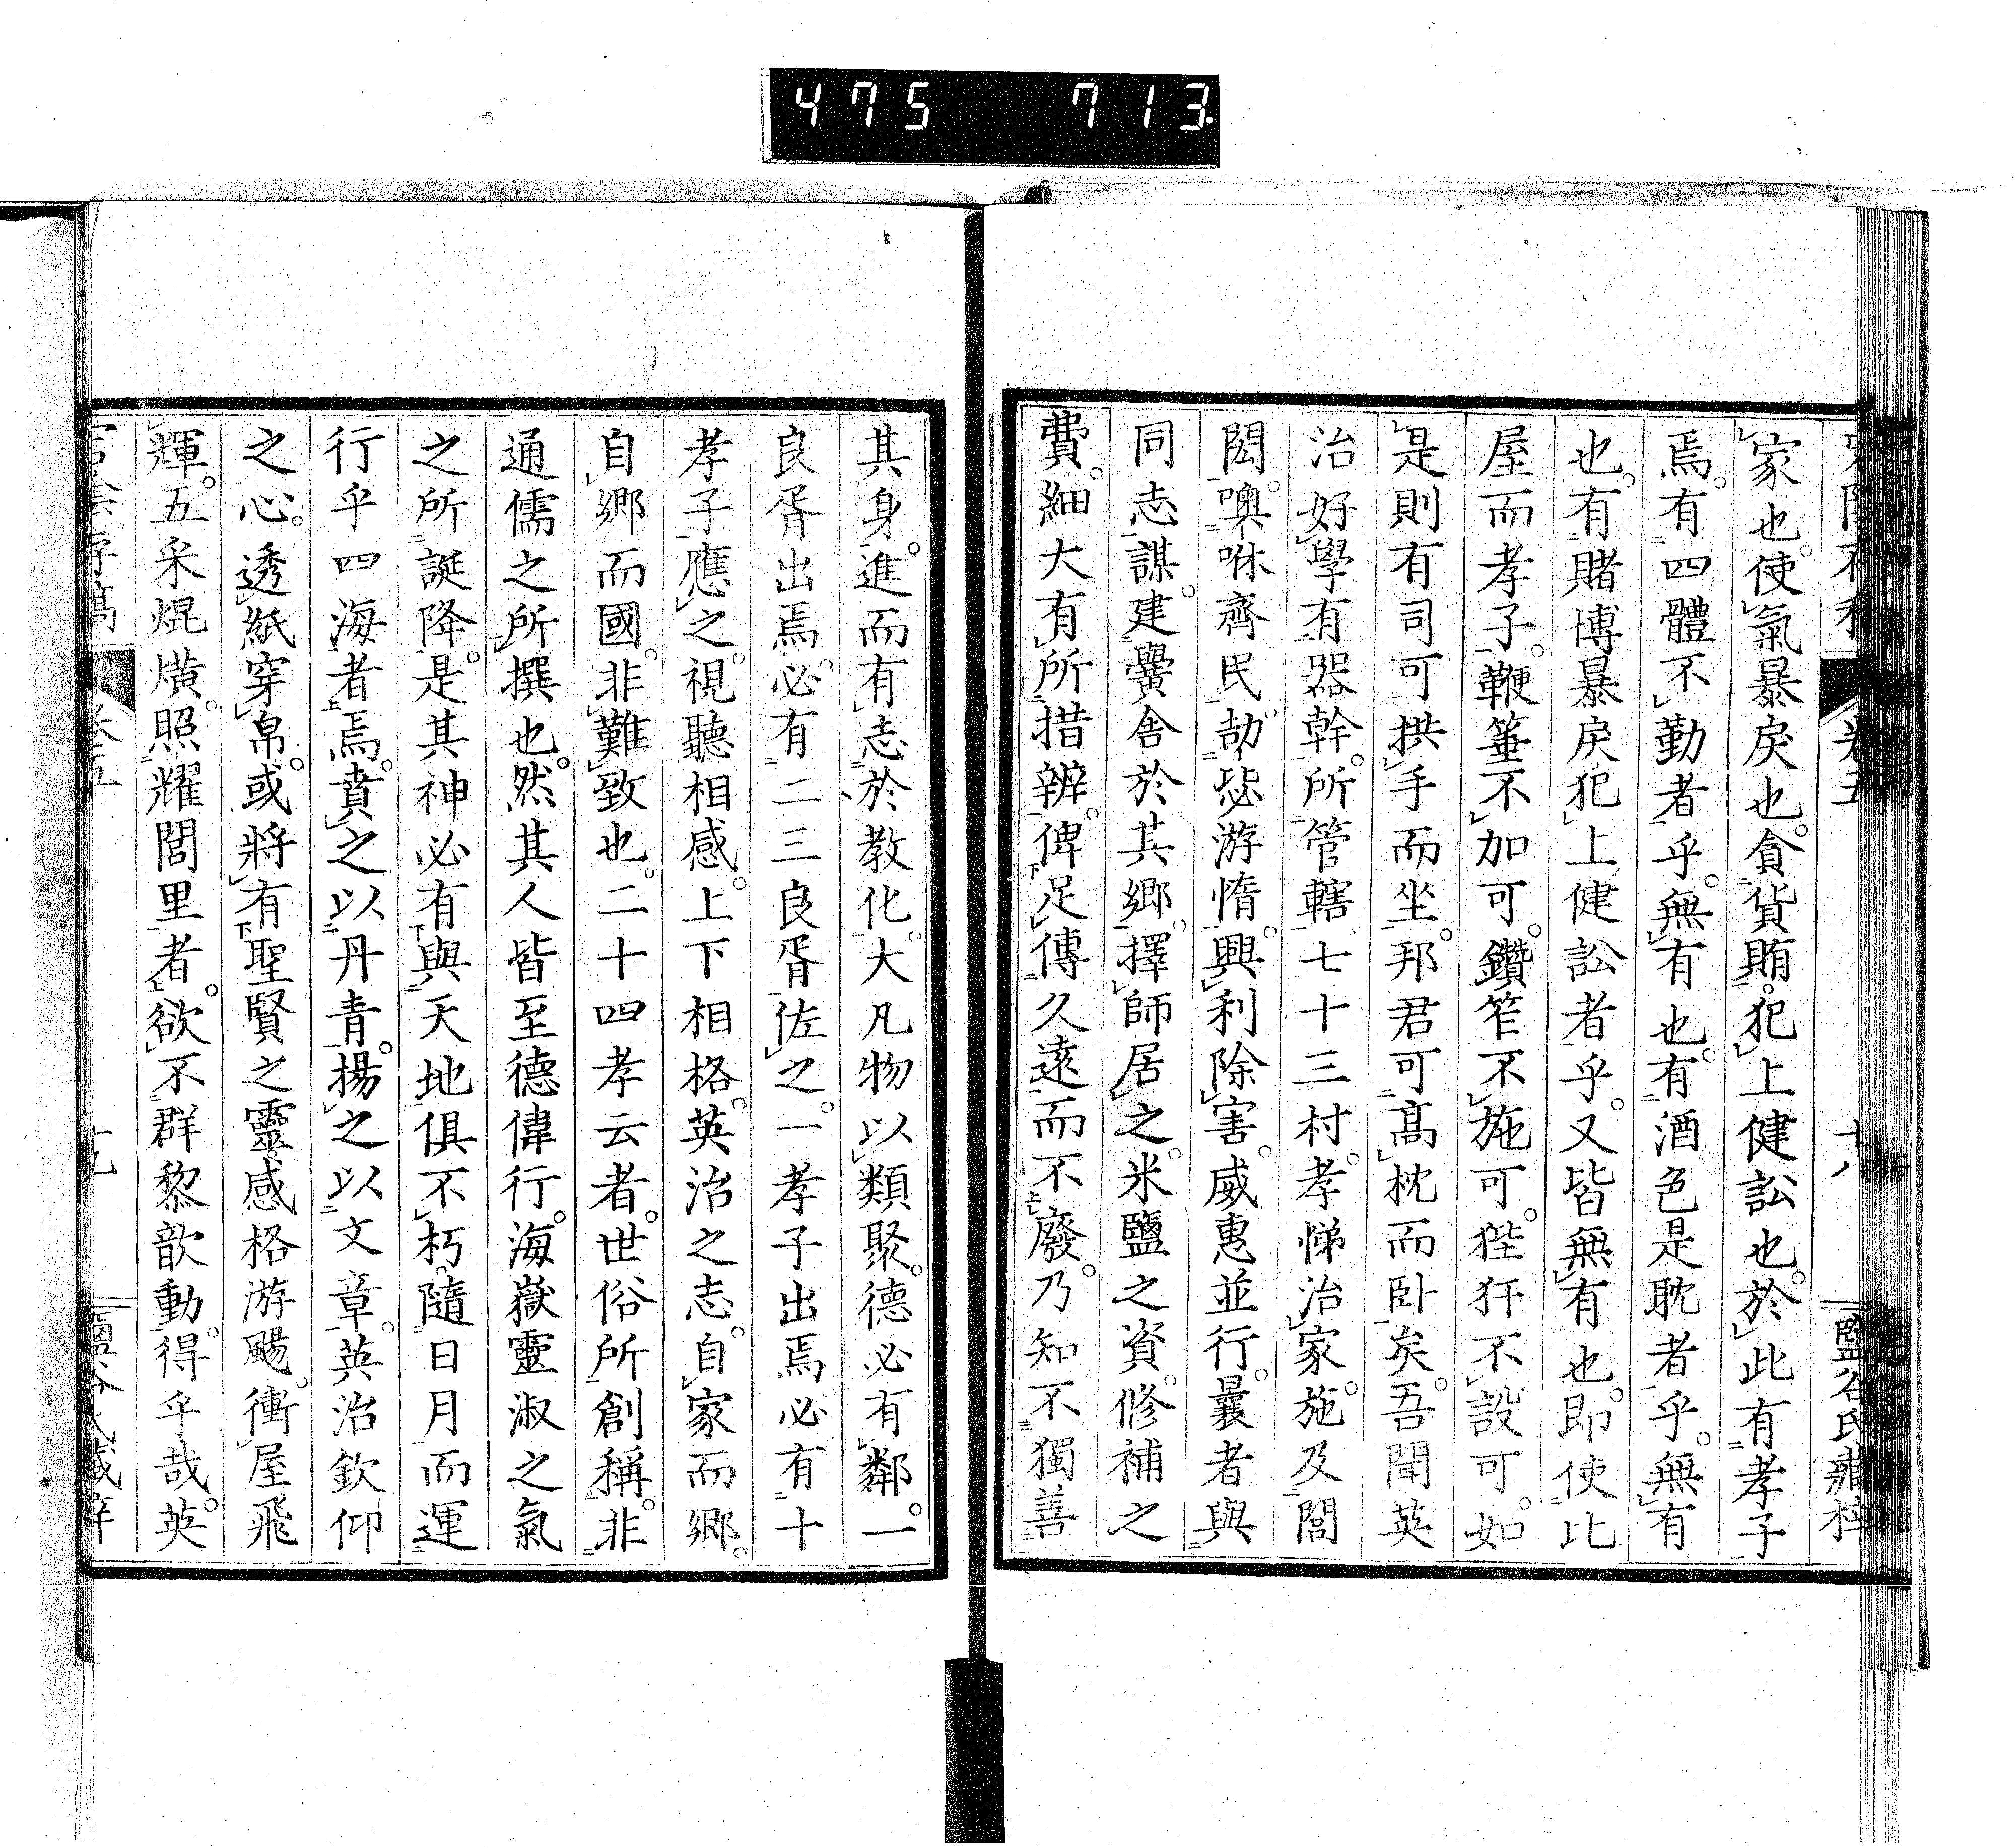 475 713
卷五 十八 鹽谷氏藏梓
家也。使氣暴戾也。貪貨賄。犯上健訟也。於此有孝子
焉。有四體不勤者乎。無有也。有酒色是耽者乎。無有
也。有賭博暴戾犯上健訟者乎。又皆無有也。即使比
屋而孝子。鞭箠不加可。鑽笮不施可。狴犴不設可。如
是則有司可拱手而坐。邦君可高枕而臥矣。吾聞英
治好學有器幹。所管轄七十三村。孝悌治家。施及閭
閻。噢咻齊民。劼毖游惰。興利除害。威惠並行。曩者與
同志謀。建黌舍於其鄉。擇師居之。米鹽之資。修補之
費。細大有所措辨。俾足傳久遠而不廢。乃知不獨善
其身。進而有志於教化。大凡物以類聚。德必有鄰。一
良胥出焉。必有二三良胥佐之。一孝子出焉必有十
孝子應之。視聽相感。上下相格。英治之志。自家而鄉。
自鄉而國。非難致也。二十四孝云者。世俗所創稱。非
通儒之所撰也。然其人皆至德偉行。海嶽靈淑之氣
之所誕降。是其神必有與天地俱不朽。隨日月而運
行乎四海者焉。賁之以丹青。揚之以文章。英治欽仰
之心。透紙穿帛。或將有聖賢之靈。感格游颺。衝屋飛
輝。五采焜燿。照耀閭里者。欲不群黎歆動。得乎哉。英
宕陰存稿 卷五 十九 鹽谷氏藏梓